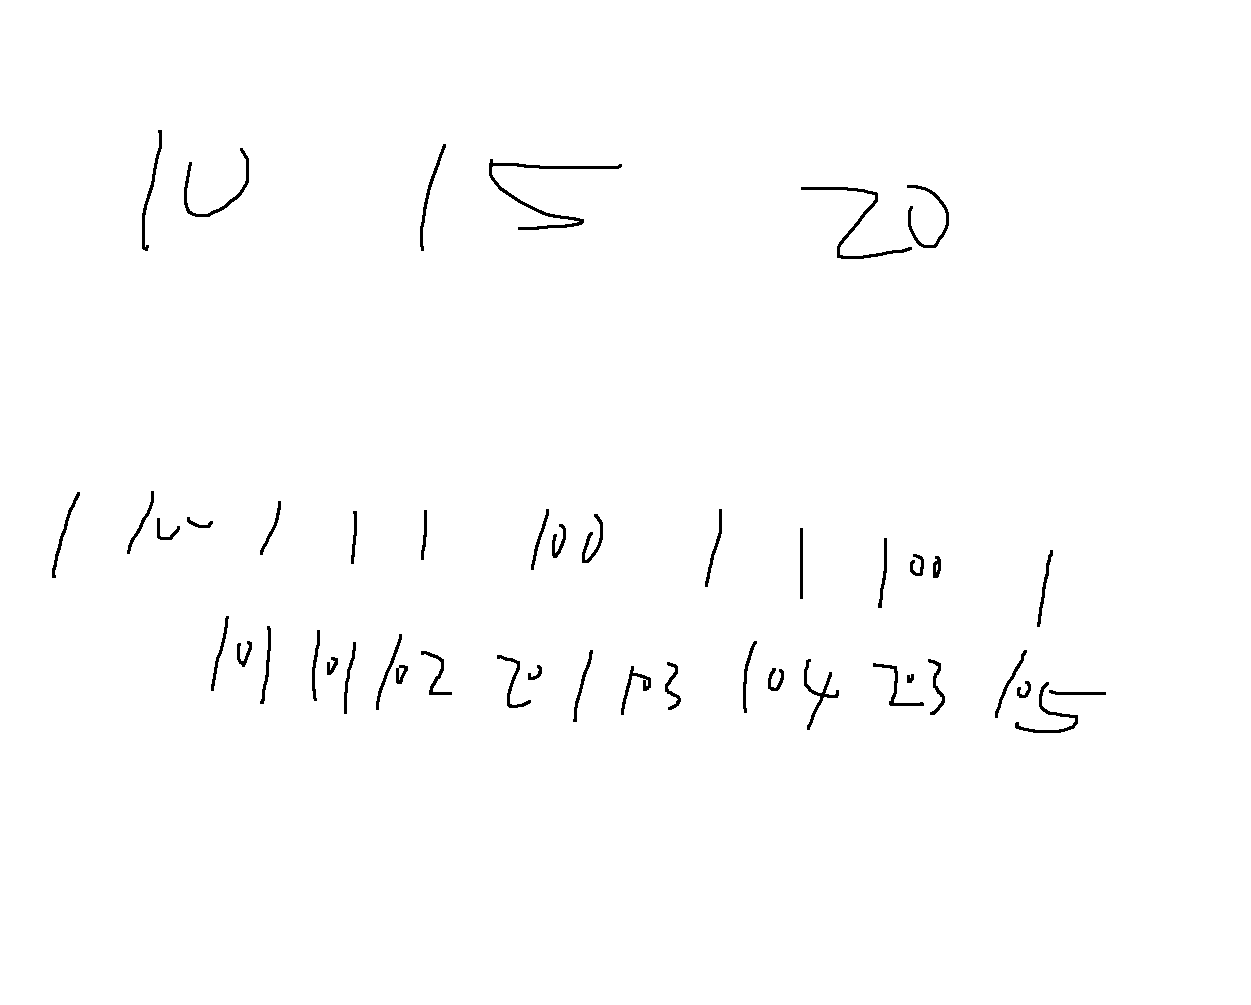 10 15 20
1 100 1 1 1 100 1 1 100 1
101 101 102 201 103 104 203 105